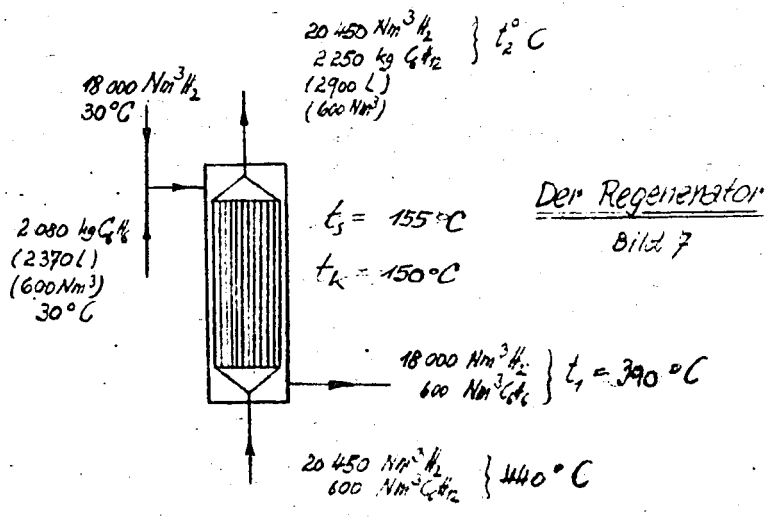 20 450 Nm³ H₂
2 250 kg C₆H₁₂
(2900 L)
(600 Nm³)
} t₂° C
18 000 Nm³ H₂
30°C
2 080 kg C₆H₆
(2370 L)
(600 Nm³)
30°C
tₛ = 155°C
tₖ = 150°C
Der Regenerator
Bild 7
18 000 Nm³ H₂
600 Nm³ C₆H₆
} t₁ = 390 °C
20 450 Nm³ H₂
600 Nm³ C₆H₁₂
} 440° C